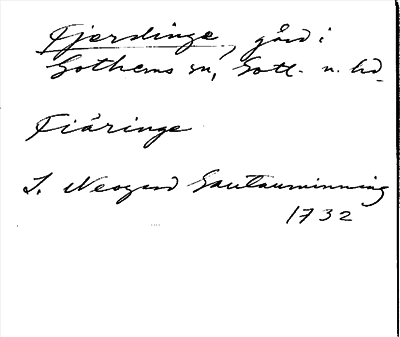 Fjerdinge, gård i
Gothems sn, Gotl. n. hd.
Fiäringe
J. Neogard Gautauminning
1732